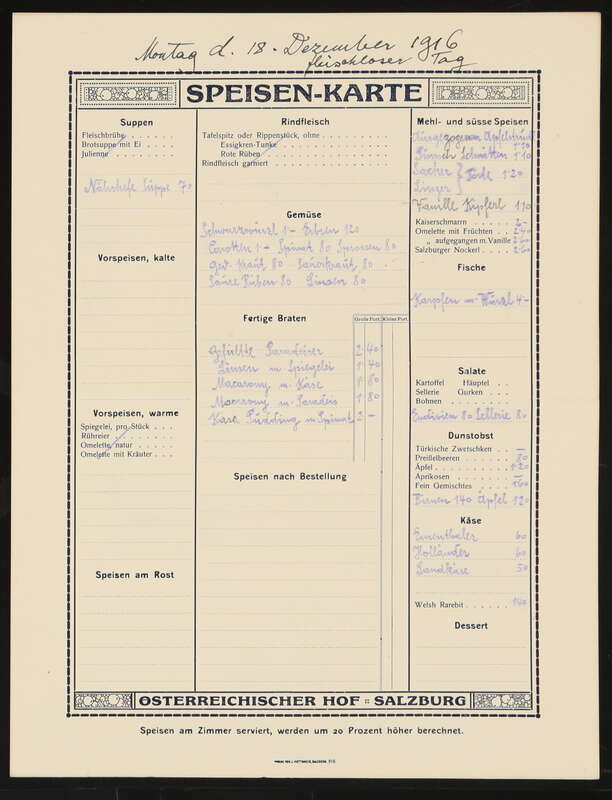 Montag d. 18. Dezember 1916
fleischloser Tag
SPEISEN-KARTE
Suppen
Fleischbrühe
Brotsuppe mit Ei
Julienne
Suppe 70
Vorspeisen, kalte
Vorspeisen, warme
Spiegelei, pro Stück
Rühreier
Omelette, natur
Omelette mit Kräuter
Speisen am Rost
Rindfleisch
Tafelspitz oder Rippenstück, ohne
Essigkren-Tunke
Rote Rüben
Rindfleisch garniert
Gemüse
Schwarzwurzl 1- Erbsen 120
Carotten 1- Spinat 80 Sprossen 80
Ged. Kraut 80 Sauerkraut 80
Saure Rüben 80 Linsen 80
Fertige Braten
Große Port. Kleine Port.
Gefüllte Paradeiser 2 40
Linsen m. Spiegelei 1 40
Macarony m. Käse 1 80
Macarony m. Paradeis 1 80
Käse Pudding m Spinat 2 -
Speisen nach Bestellung
Mehl- und süsse Speisen
Ausgezogener Apfelstrudl 1·10
Schnitten 1·10
Sacher } Torte 1·20
Linzer
Vanille Kipferl 1 10
Kaiserschmarrn 2-
Omelette mit Früchten 2·40
„ aufgegangen m. Vanille 2·60
Salzburger Nockerl 2·60
Fische
Karpfen m. Wurzl 4-
Salate
Kartoffel Häuptel
Sellerie Gurken
Bohnen
Endivien 80 Sellerie 80
Dunstobst
Türkische Zwetschken —
Preißelbeeren 80
Äpfel 1·20
Aprikosen —
Fein Gemischtes 1·60
Birnen 140 Äpfel 120
Käse
Ementhaler 60
Holländer 60
50
Welsh Rarebit 140
Dessert
ÖSTERREICHISCHER HOF :: SALZBURG
Speisen am Zimmer serviert, werden um 20 Prozent höher berechnet.